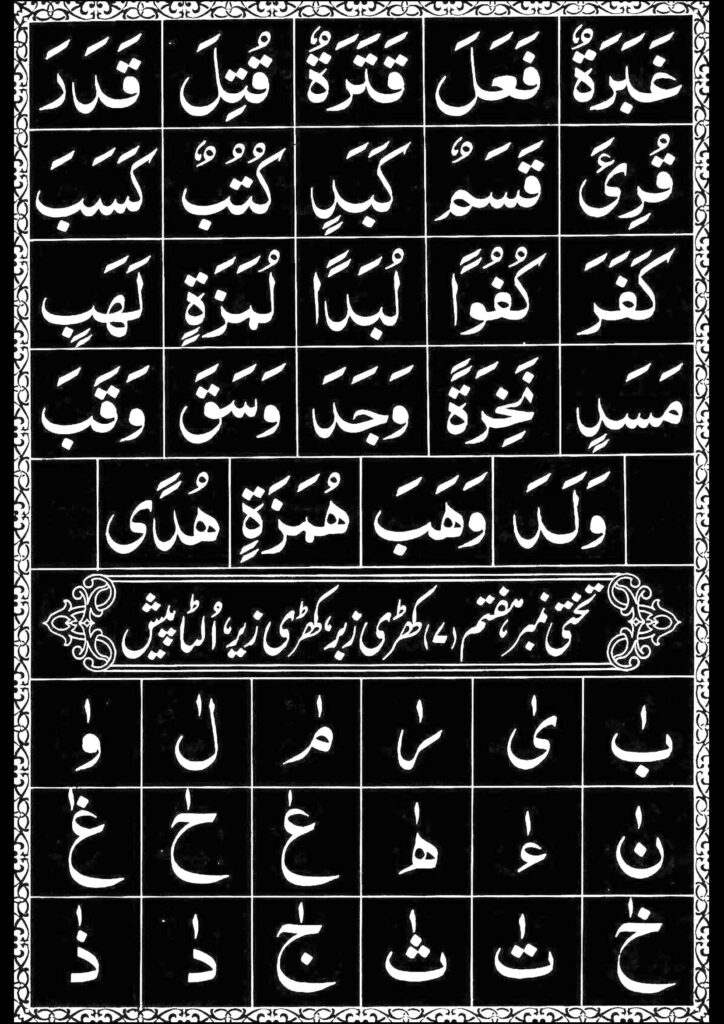 غَبَرَةٌ فَعَلَ قَتَرَةٌ قُتِلَ قَدَرَ
قُرِئَ قَسَمٌ كَبَدٍ كُتُبٌ كَسَبَ
كَفَرَ كُفُوًا لُبَدًا لُمَزَةٍ لَهَبٍ
مَسَدٍ نَخِرَةً وَجَدَ وَسَقَ وَقَبَ
وَلَدَ وَهَبَ هُمَزَةٍ هُدًى
تختی نمبر ہفتم (۷) کھڑی زبر، کھڑی زیر، اُلٹا پیش
بٰ یٰ رٰ مٰ لٰ وٰ
نٰ ءٰ هٰ عٰ حٰ غٰ
خٰ تٰ ثٰ جٰ دٰ ذٰ